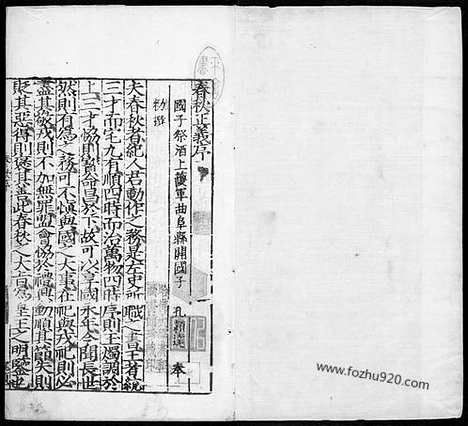 春秋正義序
國子祭酒上護軍曲阜縣開國子 孔穎達 奉
勑撰
夫春秋者紀人君動作之務是左史所職之書王者統
三才而宅九有順四時而治萬物四時序則玉燭調於
上三才協則寳命昌於下故可以享國永年令聞長世
然則有為之務可不慎與國之大事在祀與戎祀則必
盡其敬戎則不加無罪盟會協於禮興動順其節失則
貶其惡得則褒其善此春秋之大旨為皇王之明鑒也
www.fozhu920.com